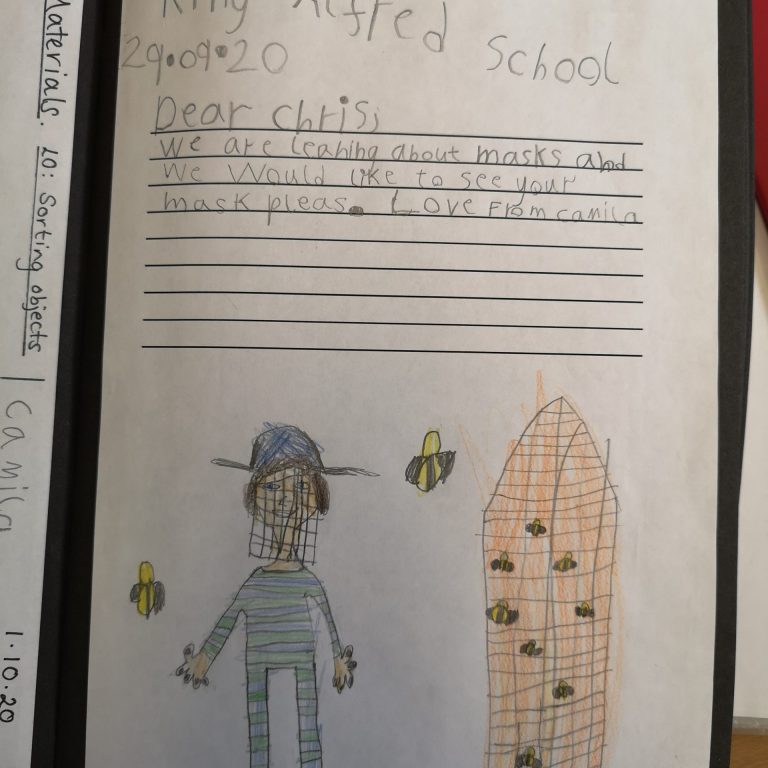 King Alfred
School
29.09.20
Dear chris,
We are leaning about masks and
We would like to see your
mask pleas. Love From camila
Materials. LO: Sorting objects
Camila
1.10.20